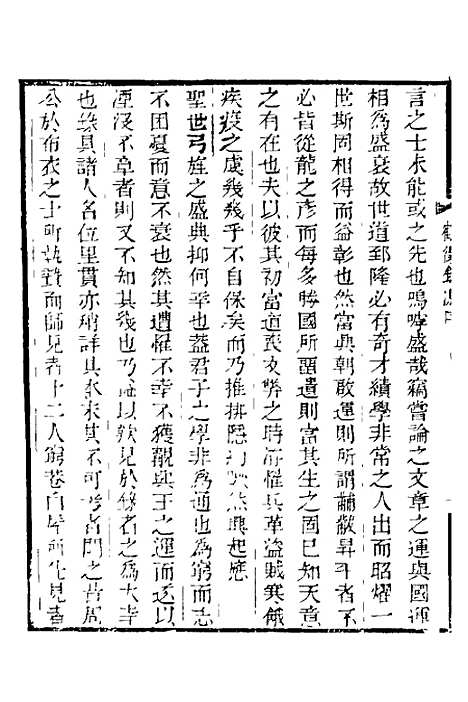 言之士未能或之先也嗚呼盛哉竊嘗論之文章之運與國運
相為盛衰故世道郅隆必有奇才績學非常之人出而昭燿一
世斯固相得而益彰也然當興朝啟運則所謂黼黻昇平者
必皆從龍之彥而每多勝國所畱遺則當其生之固已知天意
之有在也夫以彼其初當道喪文弊之時所罹兵革盜賊寒餓
疾疫之虞幾幾乎不自保矣而乃推排隱忍然興起應
聖世弓旌之盛典抑何幸也蓋君子之學非為通也為窮而志
不困憂而意不衰也然其遭罹不幸不獲觀興王之運而遂以
湮沒不章者則又不知其幾也乃或以欵見於錄者之為大幸
也錄具諸人名位里貫亦稍詳其本末其不可考者闕之昔周
公於布衣之士所執贄而師見者十二人窮巷白屋所先見者